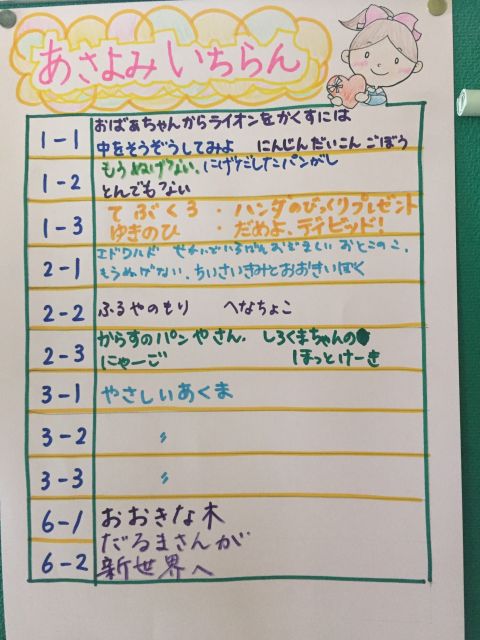 あさよみ いちらん
1-1
おばあちゃんからライオンをかくすには
中をそうぞうしてみよ にんじんだいこん ごぼう
1-2
もうぬげない、にげだしたパンがし
とんでもない
1-3
てぶくろ ・ ハンダのびっくりプレゼント
ゆきのひ ・ だめよ、デイビッド!
2-1
エドワルド せかいでいちばんおぞましい おとこのこ、
もうぬげない、ちいさいきみとおおきいぼく
2-2
ふるやのもり へなちょこ
2-3
からすのパンやさん、 しろくまちゃんの
にゃーご ほっとけーき
3-1
やさしいあくま
3-2
〃
3-3
〃
6-1
おおきな木
だるまさんが
6-2
新世界へ